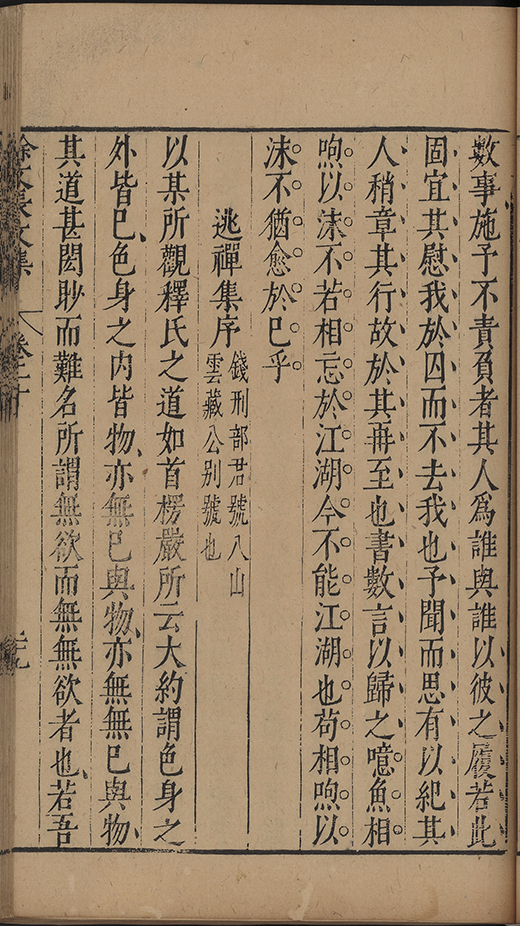 數事施予不責負者其人爲誰與誰以彼之履若此
固宜其慰我於囚而不去我也予聞而思有以紀其
人稍章其行故於其再至也書數言以歸之噫魚相
呴以沫不若相忘於江湖今不能江湖也苟相呴以
沫不猶愈於已乎
逃禪集序
錢刑部君號八山
雲藏公别號也
以某所觀釋氏之道如首楞嚴所云大約謂色身之
外皆已色身之内皆物亦無已與物亦無無已與物
其道甚閎眇而難名所謂無欲而無無欲者也若吾
徐文長文集
卷二十